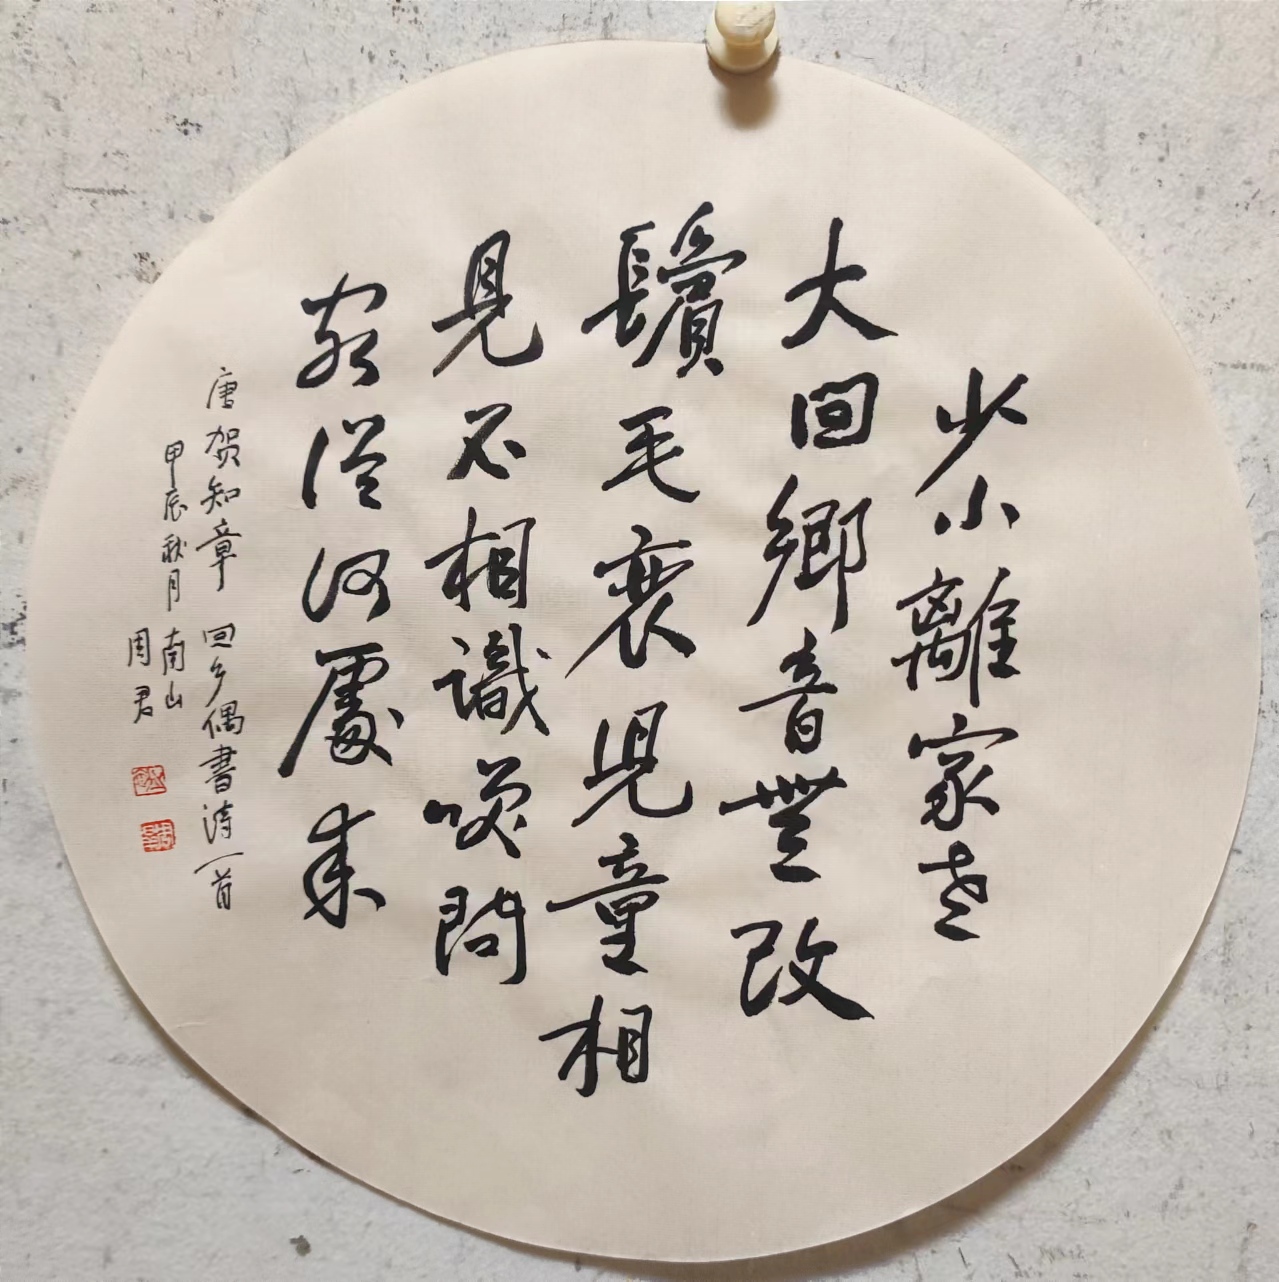 少小離家老
大回鄉音無改
鬢毛衰兒童相
見不相識笑問
客從何處来
唐贺知章 回乡偶書诗一首
甲辰秋月 南山
周君